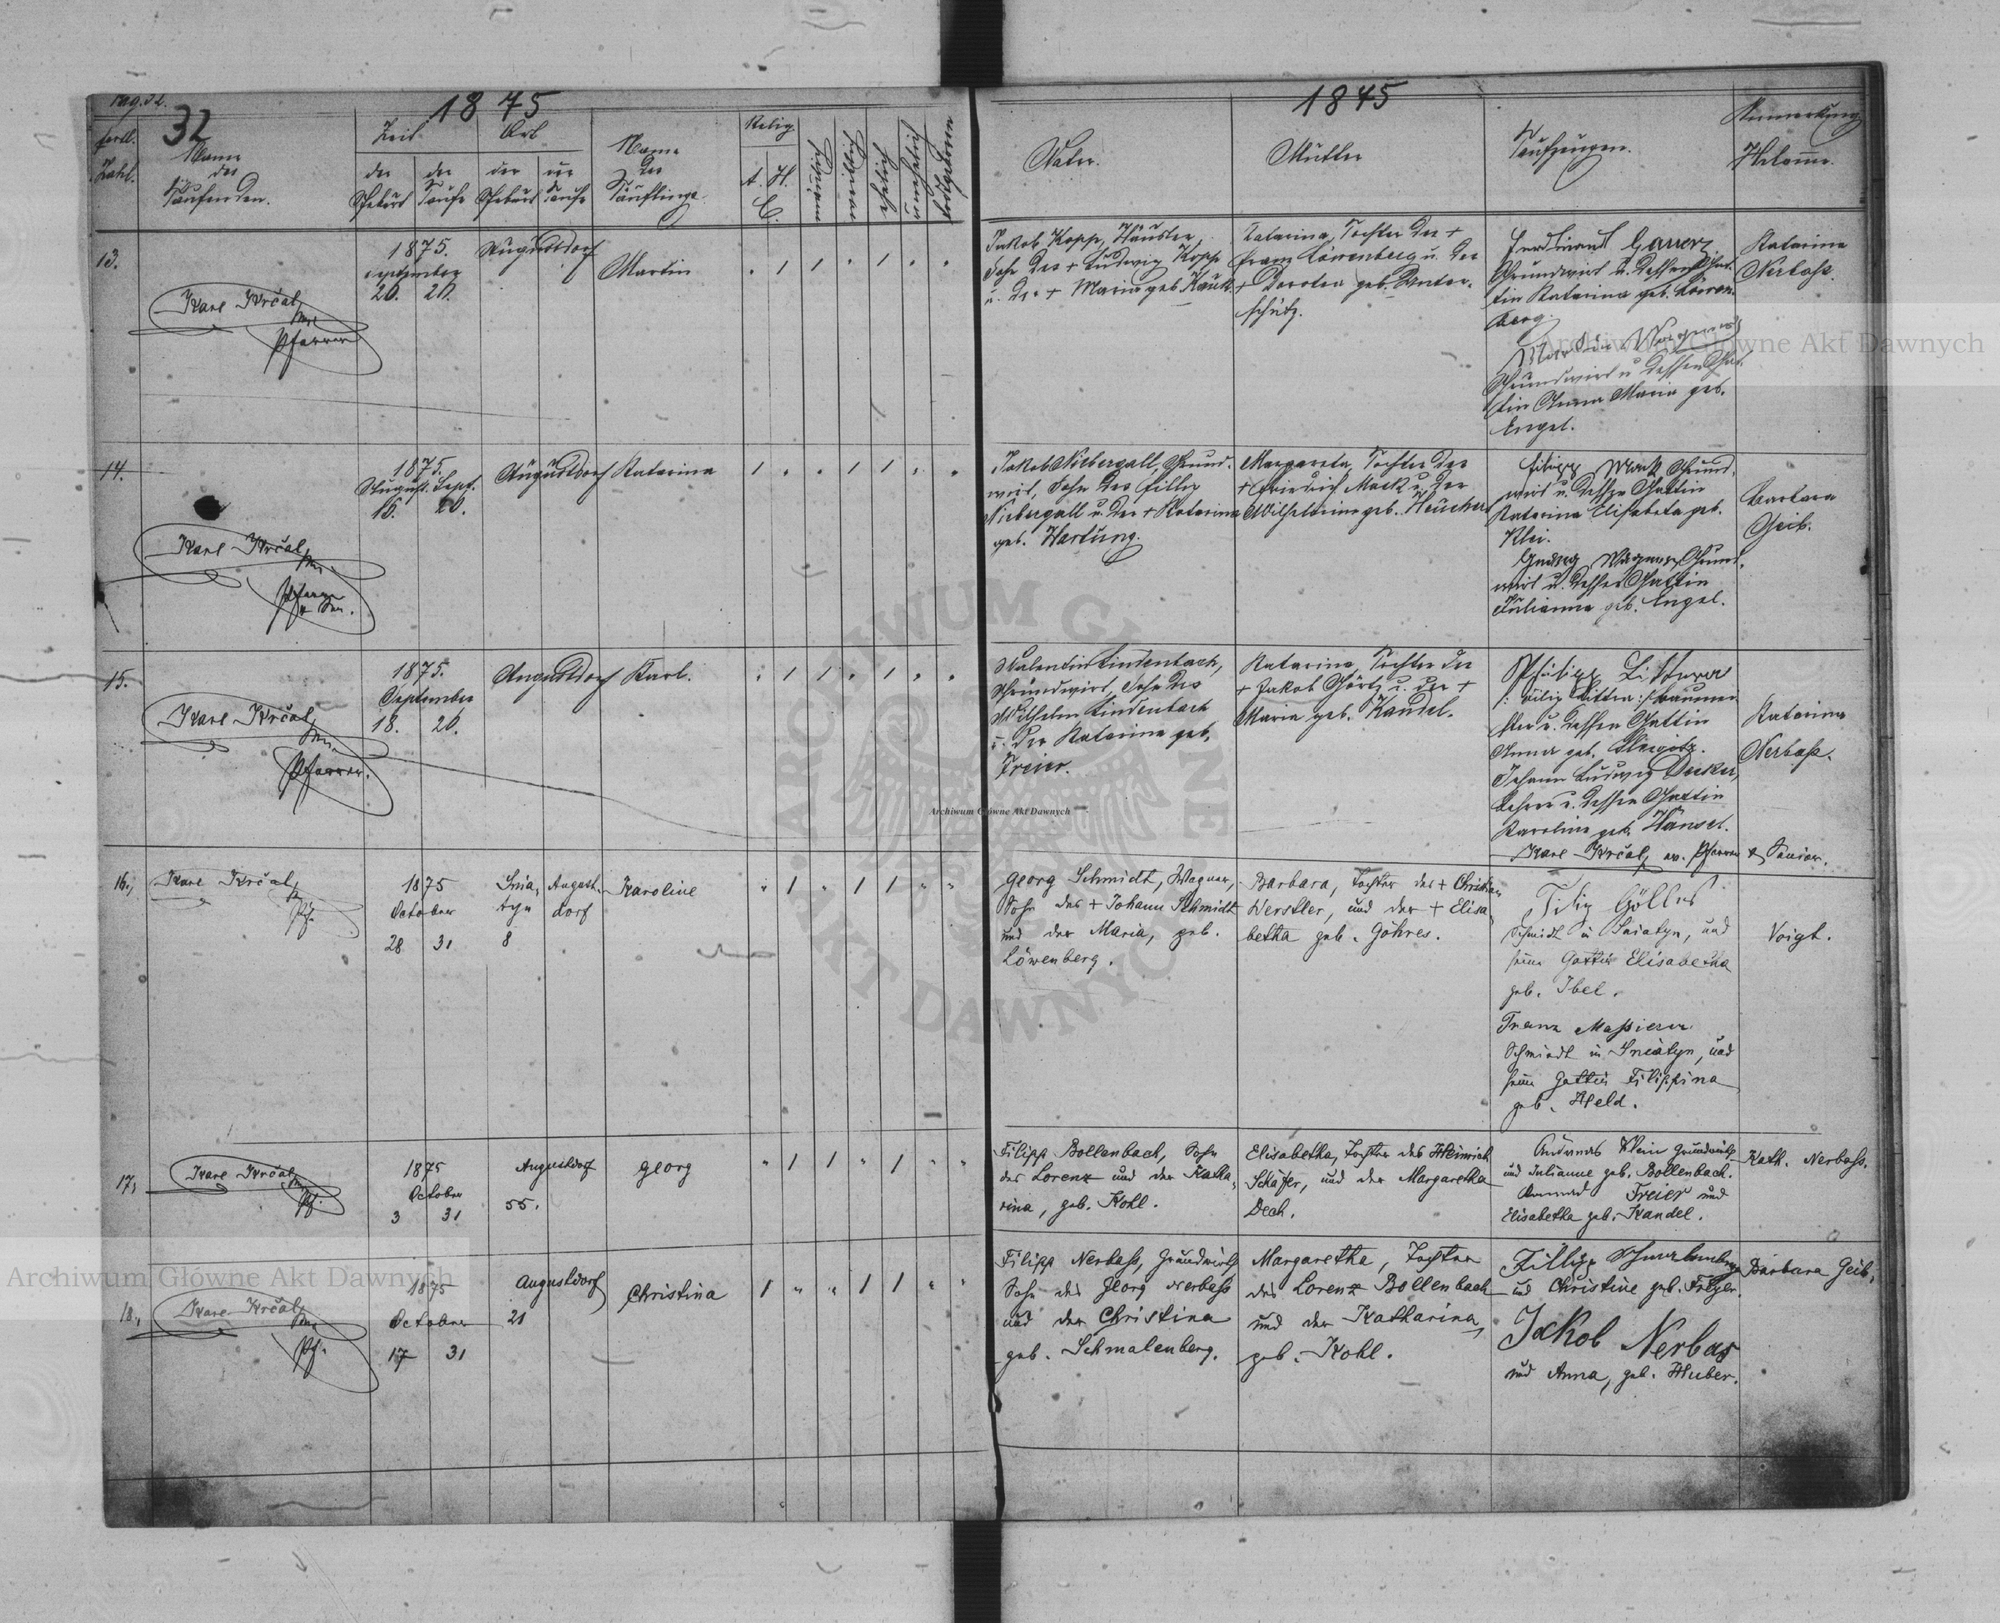 pag. 32.
32
1875
fortl. Zahl.
Name des Taufenden.
Zeit
der Geburt
der Taufe
Ort
der Geburt
der Taufe
Name des Täuflings.
Relig.
A. H.
C.
ehelich
unehelich
todtgeboren
1845
Vater.
Mutter
Taufzeugen.
Anmerkung
Hebamme.
13.
Karl Krčal,
Pfarrer
1875.
September
20. 20.
Augustdorf
Martin
Jakob Kopp, Häusler,
Sohn des + Ludwig Kopp
u. der + Maria geb. Kauk.
Katarina, Tochter des +
Franz Löwenberg u. der
+ Dorotea geb. Unter-
schütz.
Ferdinand
Grundwirt u. dessen Gat-
tin Katarina geb. Löwen-
berg.
Martin Wagner
Grundwirt u dessen Gat-
tin Anna Maria geb.
Engel.
Katarina
Nerbass.
14.
Karl Krčal,
Pfarrer
u Sen.
1875.
August. Sept.
15. 20.
Augustdorf
Katarina
Jakob Niebergall, Grund-
wirt, Sohn des Filipp
Niebergall u. der + Katarina
geb. Hartung.
Margareta, Tochter des
+ Friedrich Mack u. der
Wilhelmine geb. Heuchert
Filipp Mack Grund-
wirt u. dessen Gattin
Katarina Elisabeta geb.
Klei.
Georg Wagner Grund-
wirt u. dessen Gattin
Julianna geb. Engel.
Barbara
Geib.
15.
Karl Krčal,
Pfarrer.
1875.
September
18. 20.
Augustdorf
Karl.
Valentin Lindenbach,
Grundwirt, Sohn des
Wilhelm Lindenbach
u. der Katarina geb.
Freier.
Katarina, Tochter des
+ Jakob Görtz u. der +
Maria geb. Kandel.
Philipp
u. dessen Gattin
Anna geb.
Johann Ludwig Decker,
Lehrer u. dessen Gattin
Karolina geb. Hänsel.
Karl Krčal, ev. Pfarrer & Senior.
Katarina
Nerbass.
16.,
Karl Krčal,
Pf.
1875
October
28 31
Snia-
tyn
8
August-
dorf
Karoline
Georg Schmidt, Wagner,
Sohn des + Johann Schmidt
und der Maria, geb.
Löwenberg.
Barbara, Tochter des + Christian
Werstler, und der + Elisa-
betha geb. Göhres.
Filip Göllner
Schmidt in Sniatyn, und
seine Gattin Elisabetha
geb. Ibel.
Franz Massierer
Schmiedt in Sniatyn, und
seine Gattin Filippina
geb. Held.
Voigt.
17.,
Karl Krčal,
Pf.
1875
October
3 31
Augustdorf
55.
Georg
Filipp Bollenbach, Sohn
des Lorenz und der Katha-
rina, geb. Kohl.
Elisabetha, Tochter des Heinrich
Schäfer, und der Margaretha
Dech.
Andreas Klein Grundwirth
und Julianne geb. Bollenbach.
Konrad Freier und
Elisabetha geb. Kandel.
Kath. Nerbass.
18.,
Karl Krčal,
Pf.
1875
October
17 31
Augustdorf
21
Christina
Filipp Nerbass, Grundwirth
Sohn des Georg Nerbass
und der Christina
geb. Schmalenberg.
Margaretha, Tochter
des Lorenz Bollenbach
und der Katharina,
geb. Kohl.
Fillipp Schmalenberg
und Christine geb. Filzer.
Jakob Nerbas
und Anna, geb. Huber.
Barbara Geib,
Archiwum Główne Akt Dawnych
Archiwum Główne Akt Dawnych
Archiwum Główne Akt Dawnych
ARCHIWUM GŁÓWNE AKT DAWNYCH